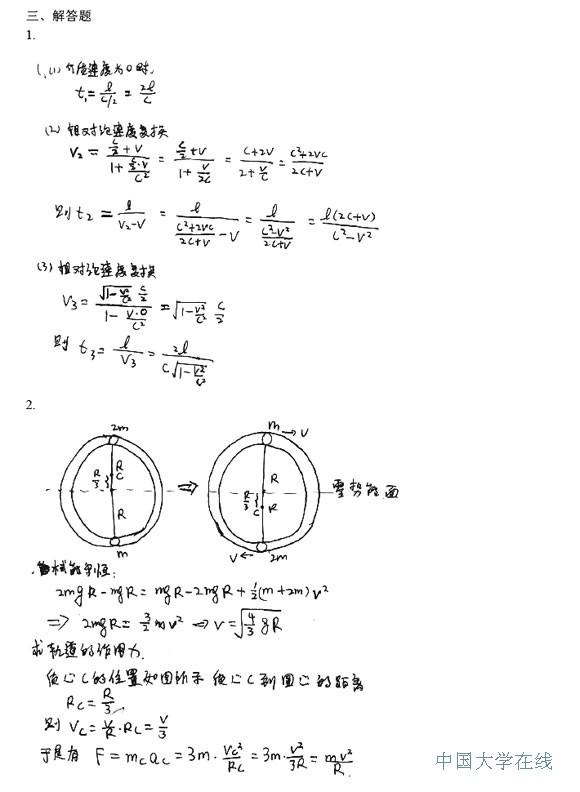 三、解答题
1.
1. (1) 介质速度为0时,
t₁ = l/(c/2) = 2l/c
(2) 相对论速度变换
V₂ = (c/2 + v)/(1 + (c/2·v)/c²) = (c/2 + v)/(1 + v/2c) = (c+2v)/(2 + v/c) = (c²+2vc)/(2c+v)
则 t₂ = l/(V₂-V) = l/((c²+2vc)/(2c+v) - v) = l/((c²-v²)/(2c+v)) = l(2c+v)/(c²-v²)
(3) 相对论速度变换
V₃ = (√(1-v²/c²) c/2)/(1 - (v·0)/c²) = √(1-v²/c²) c/2
则 t₃ = l/V₃ = 2l/(c√(1-v²/c²))
2.
2m
R
C
R/3
R
m
⇒
m → v
R
R/3
C
R
v ←
2m
零势能面
由机械能守恒:
2mgR - mgR = mgR - 2mgR + ½(m+2m)v²
⇒ 2mgR = 3/2 mv² ⇒ v = √(4/3 gR)
求轨道的作用力.
质心C的位置如图所示 质心C到圆心的距离
Rc = R/3,
则 Vc = v/R · Rc = v/3
于是有 F = mc ac = 3m · Vc²/Rc = 3m · v²/3R = mv²/R.
中国大学在线